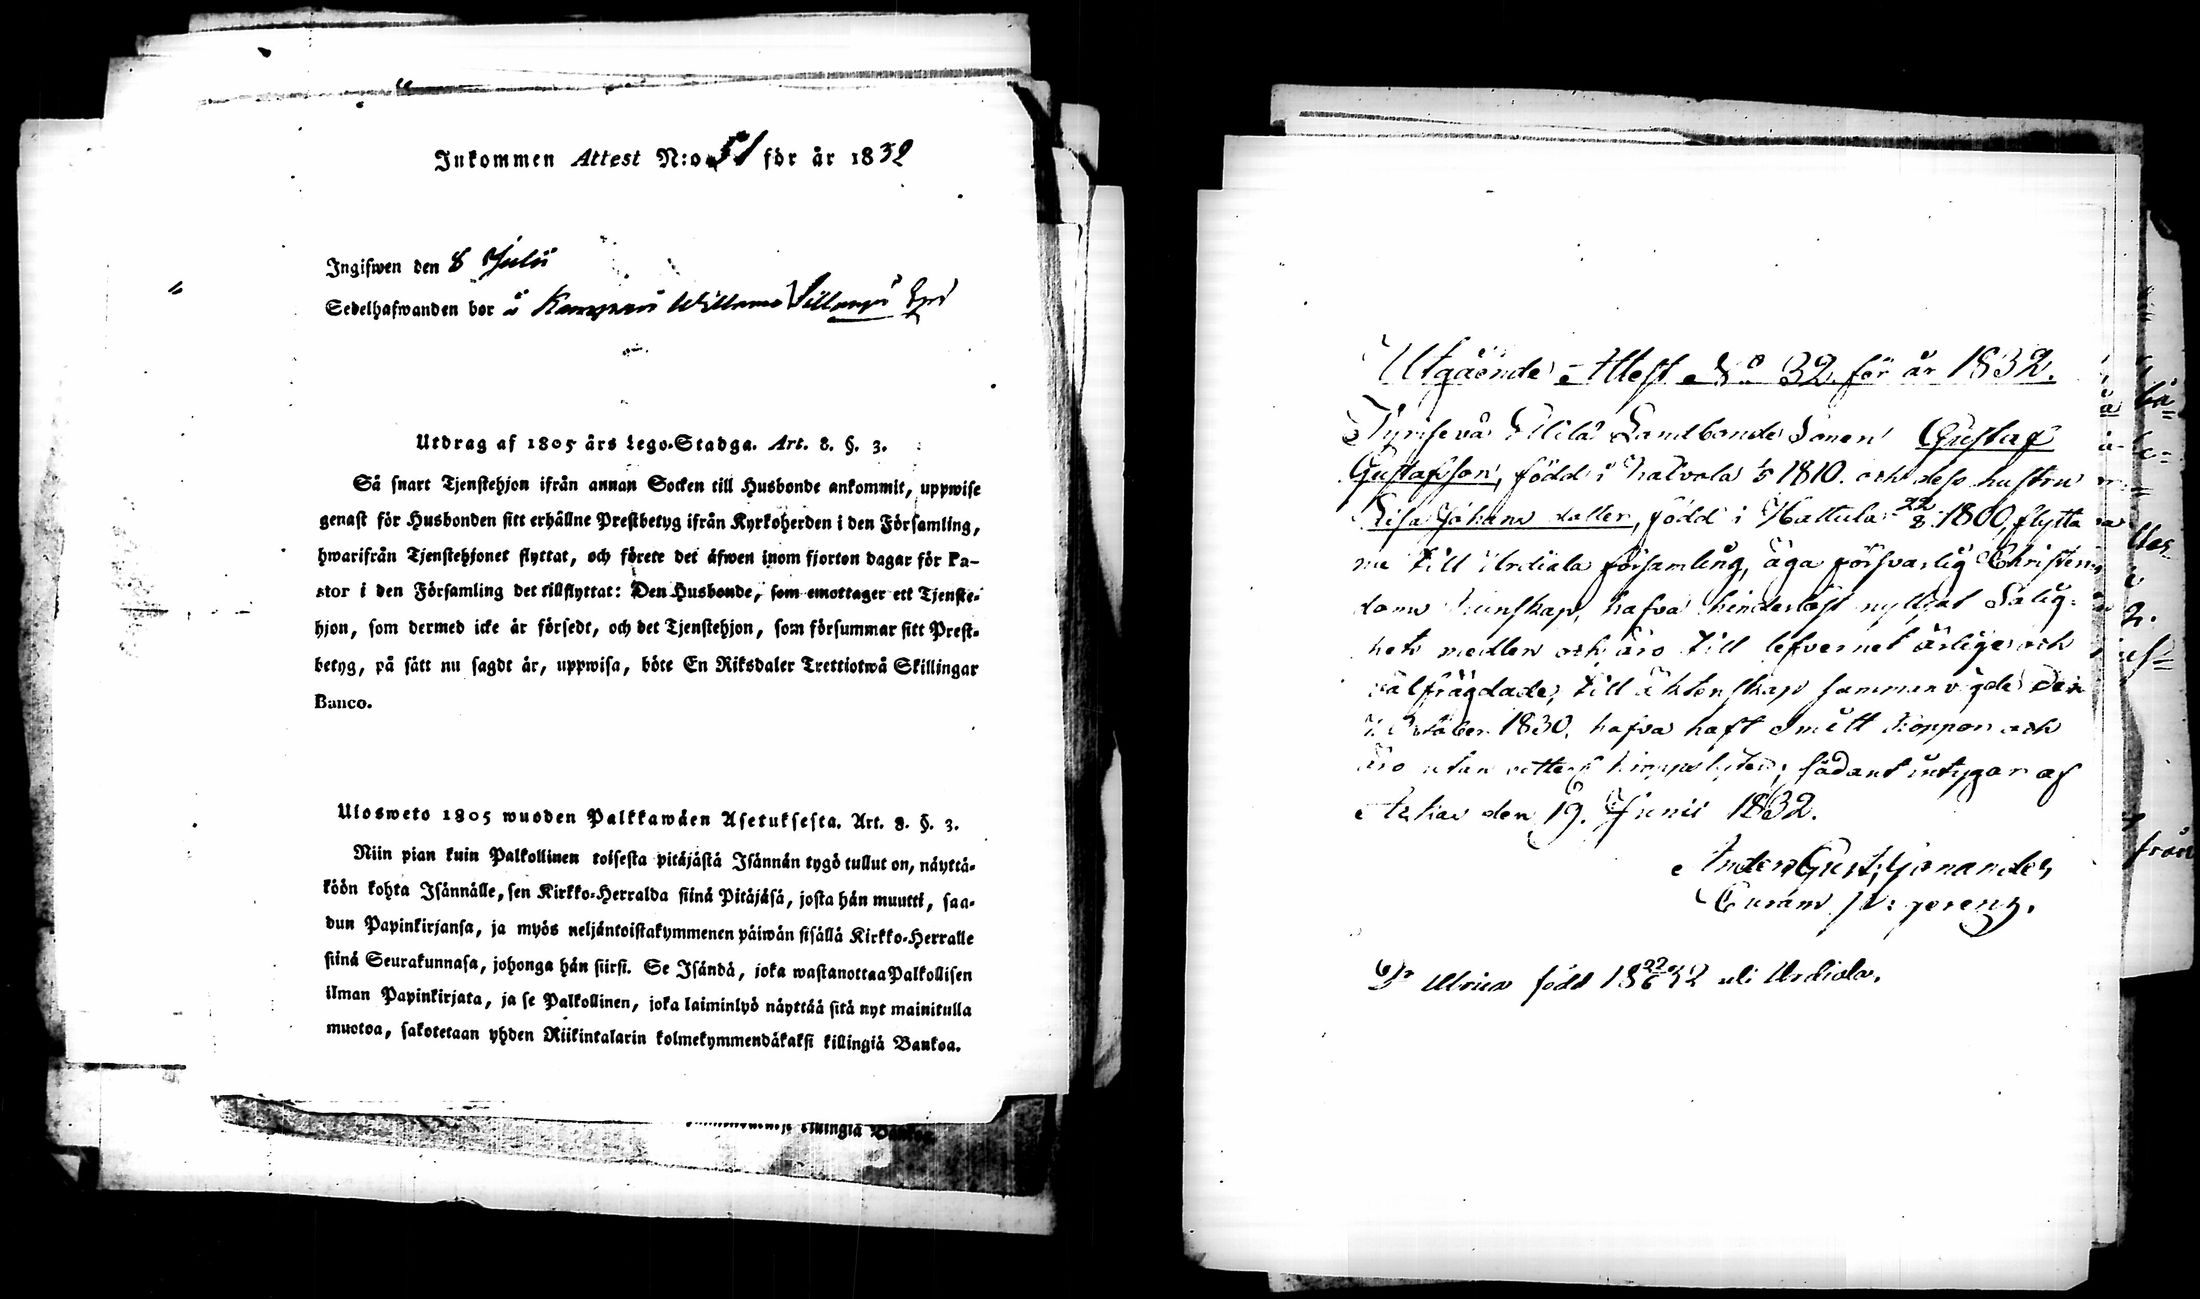 Inkommen Attest N:o 51 för år 1832
Ingifwen den 8 Julii
Sedelhafwanden bor å Kamppari Willamo Sillanpä
Utdrag af 1805 års Lego-Stadga. Art. 8. §. 3.
Så snart Tjenstehjon ifrån annan Socken till Husbonde ankommit, uppwise
genast för Husbonden sitt erhållne Prestbetyg ifrån Kyrkoherden i den Församling,
hwarifrån Tjenstehjonet flyttat, och förete det äfwen inom fjorton dagar för Pa-
stor i den Församling det tillflyttat: Den Husbonde, som emottager ett Tjenste-
hjon, som dermed icke är försedt, och det Tjenstehjon, som försummar sitt Prest-
betyg, på sätt nu sagdt är, uppwisa, böte En Riksdaler Trettiotwå Skillingar
Banco.
Ulosweto 1805 wuoden Palkkawäen Asetuksesta. Art. 8. §. 3.
Niin pian kuin Palkollinen toisesta pitäjästä Isännän tygö tullut on, näyttä-
köön kohta Isännälle, sen Kirkko-Herralda siinä Pitäjäsä, josta hän muutti, saa-
dun Papinkirjansa, ja myös neljäntoistakymmenen päiwän sisällä Kirkko-Herralle
siinä Seurakunnasa, johonga hän siirsi. Se Isändä, joka wastanottaa Palkollisen
ilman Papinkirjata, ja se Palkollinen, joka laiminlyö näyttää sitä nyt mainitulla
muotoa, sakotetaan yhden Riikintalarin kolmekymmendäkaksi killingiä Bankoa.
killingiä Bankoa.
Utgående Attest No 32 för år 1832.
Landbonde Sonen Gustaf
Gustafsson, född i Kalvola 1810. och dess hustru
Lisa Johans dotter, född i Hattula 22/8 1800, flytta
nu till Urdiala församling, äga försvarlig Christen-
doms kunskap, hafva hinderlöst nyttjat Salig-
hets medlen och äro till lefvernet ärlige och
välfrägdade, till äktenskap sammanvigde den
October 1830. hafva haft Smitt koppor och
äro utan kroppslyten; sådant intygar af
Akkas den 19. Junii 1832.
Anders Gust.
född 18 22/6 32 i Urdiala.
från